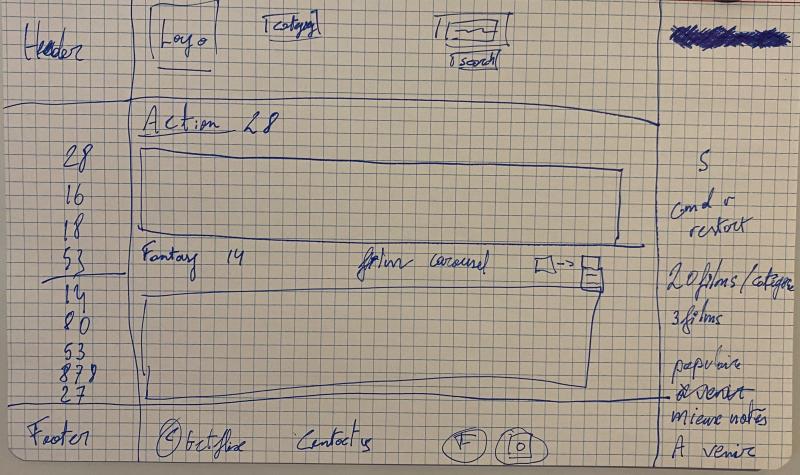 Header
Logo
category
search
Action 28
28
16
18
53
Fantasy 14
film carousel
14
80
53
878
27
S
cmd r
restart
20 films / catégorie
3 films
populaire
mieux notés
A venir
Footer
© Getflix
Contact us
F